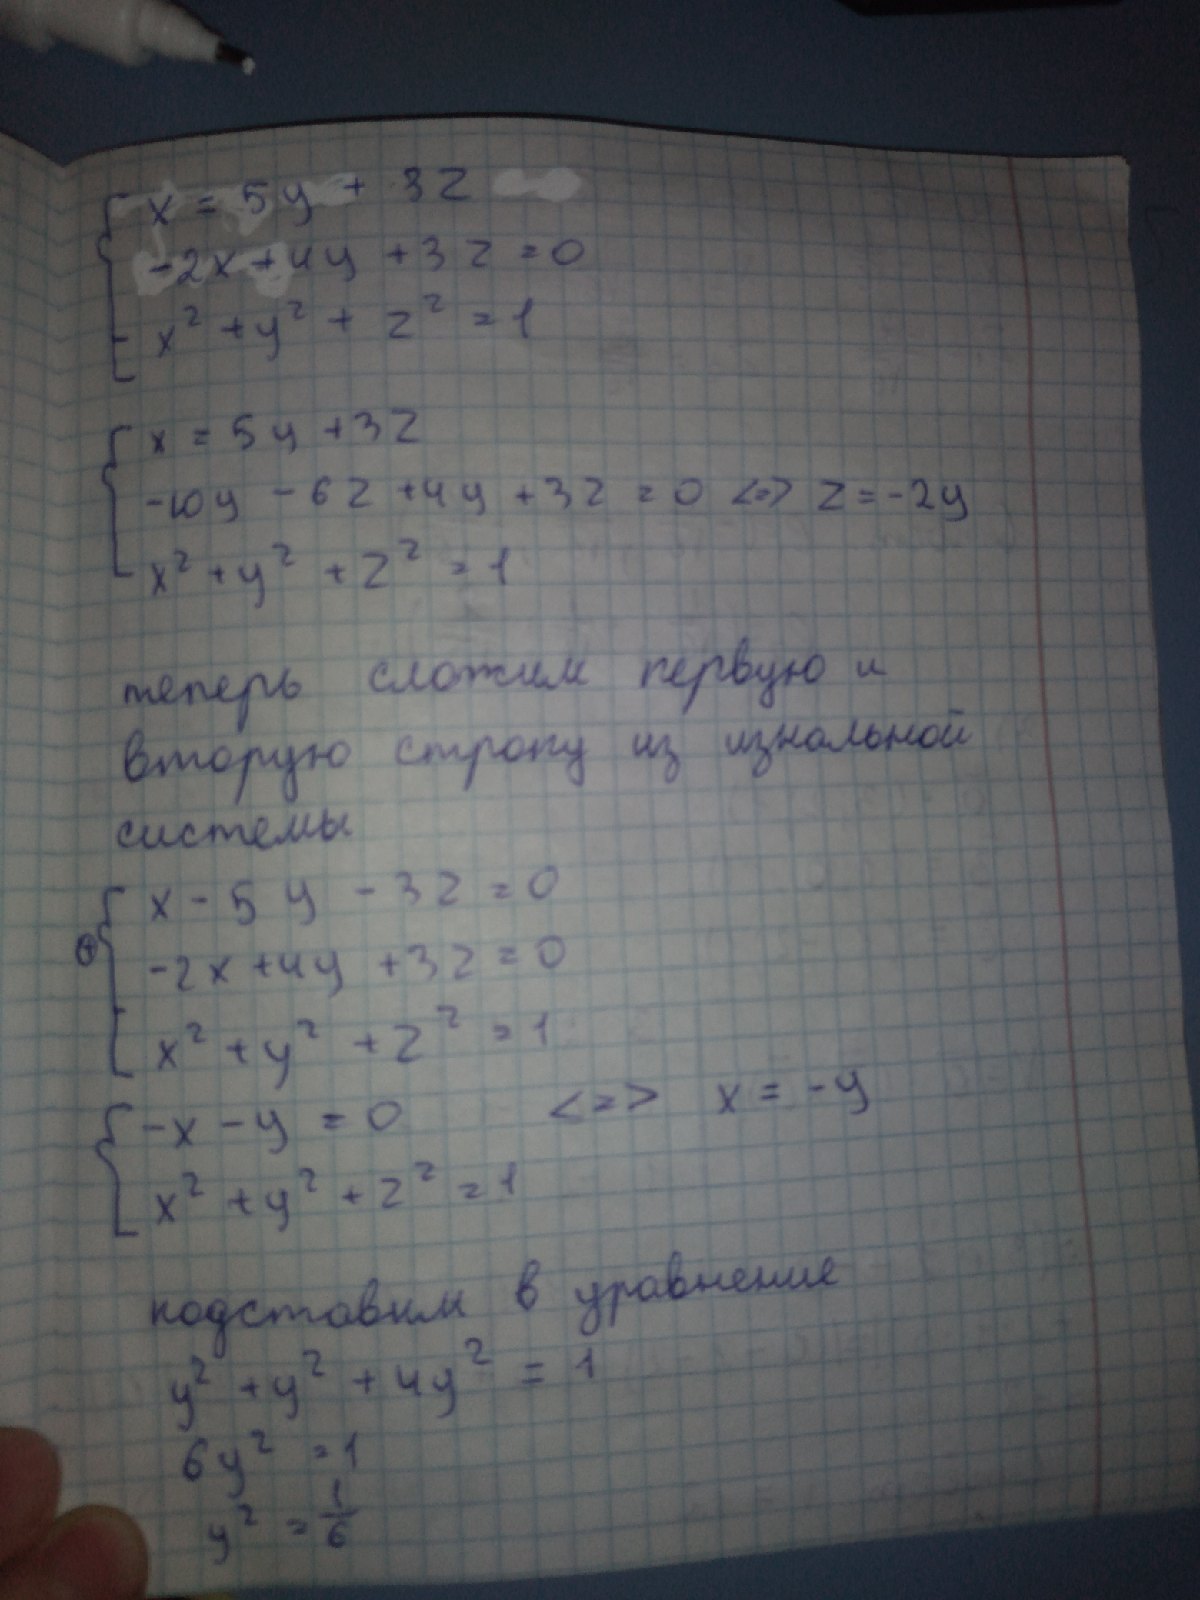 x = 5y + 3z
-2x + 4y + 3z = 0
x² + y² + z² = 1
x = 5y + 3z
-10y - 6z + 4y + 3z = 0 <=> z = -2y
x² + y² + z² = 1
теперь сложим первую и
вторую строку из изнальной
системы
x - 5y - 3z = 0
-2x + 4y + 3z = 0
x² + y² + z² = 1
-x - y = 0 <=> x = -y
x² + y² + z² = 1
подставим в уравнение
y² + y² + 4y² = 1
6y² = 1
y² = 1/6